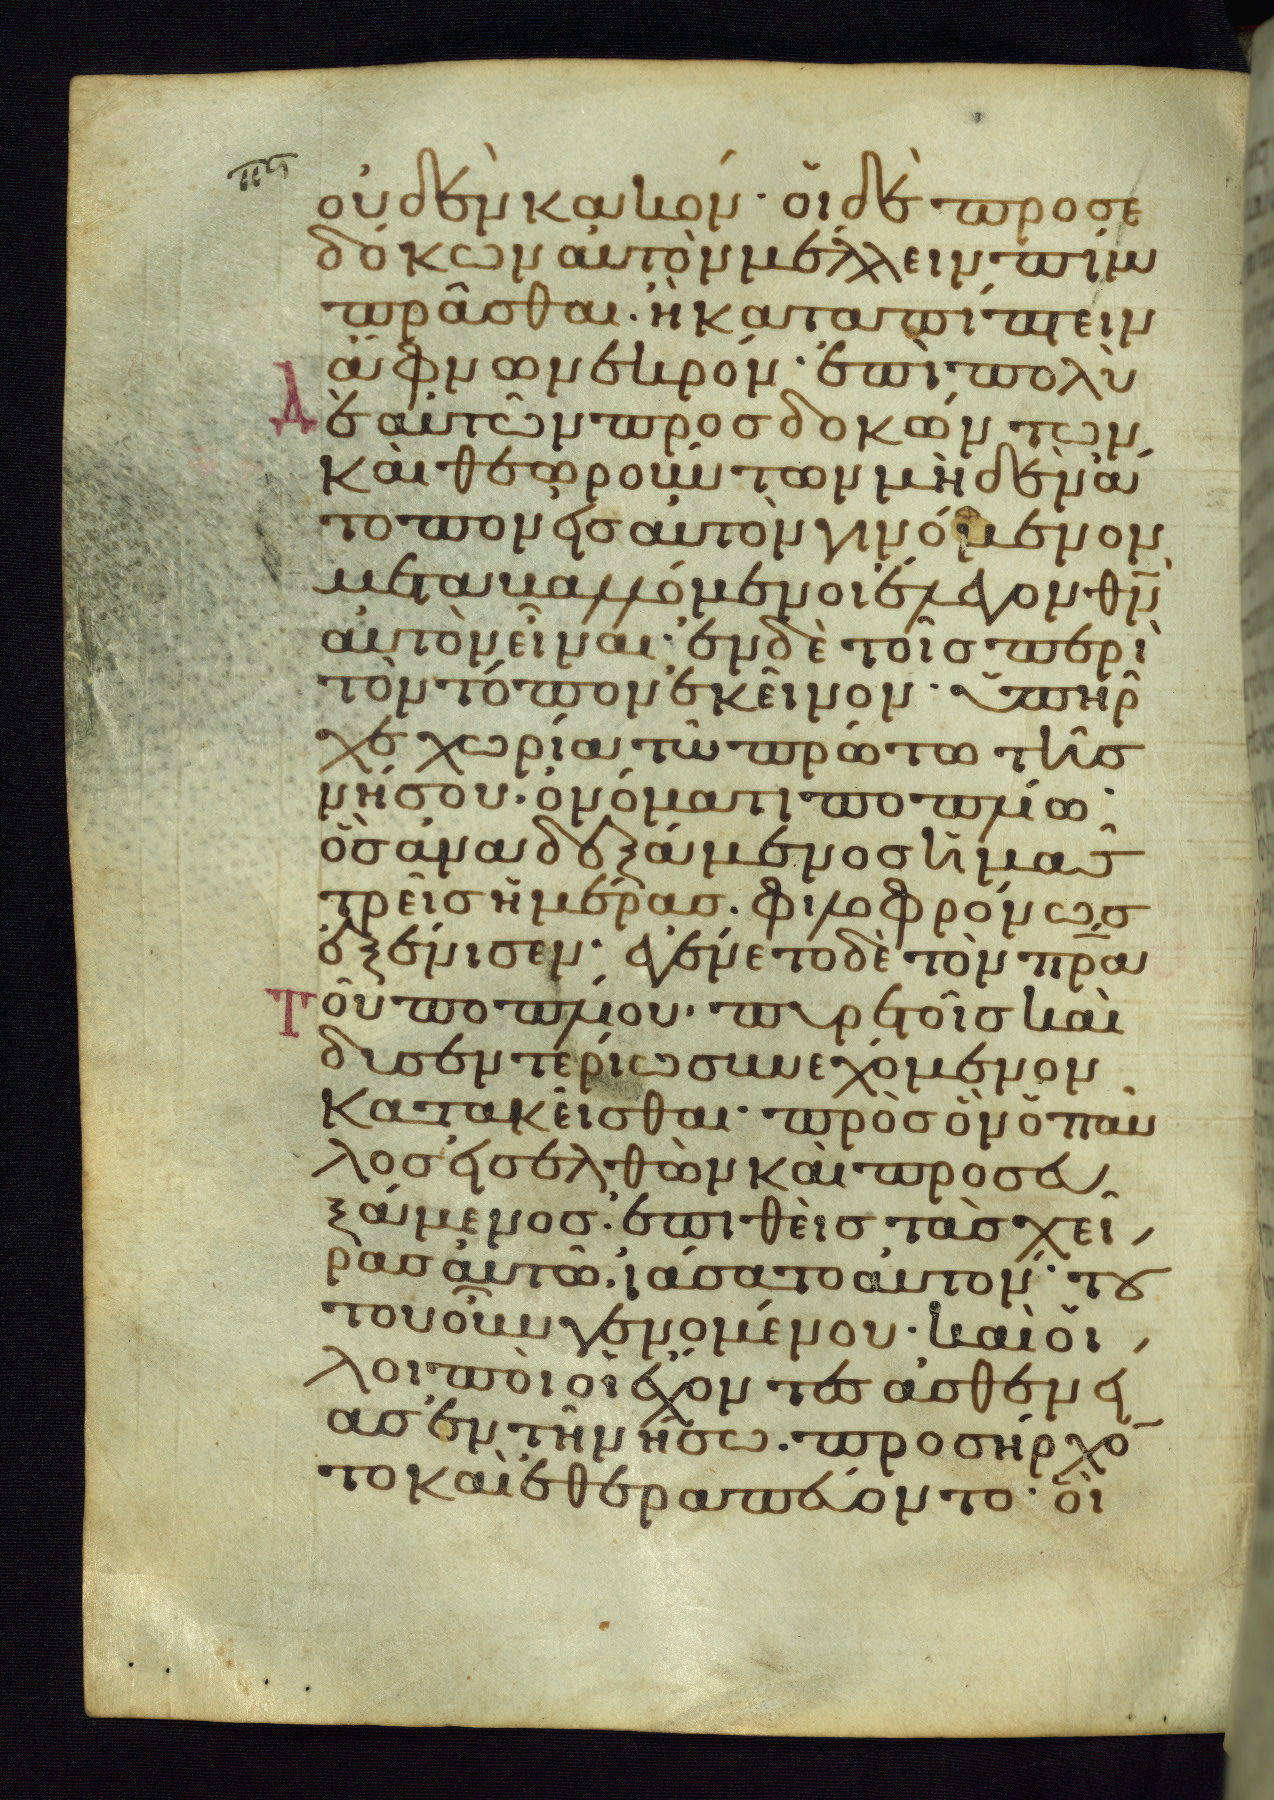 πϛ
οὐδὲν κακόν· οἱ δὲ προσε
δόκων αὐτὸν μέλλειν πίμ
πρᾶσθαι· ἢ καταπίπτειν
ἄφνω νεκρόν· ἐπὶ πολὺ
Δὲ αὐτῶν προσδοκώντων
καὶ θεωρούντων μηδὲν ἄ
τοπον εἰς αὐτὸν γινόμενον
μεταβαλλόμενοι ἔλεγον θν̄
αὐτὸν εἶναι· ἐν δὲ τοῖς περὶ
τὸν τόπον ἐκεῖνον· ὑπῆρ
χε χωρία τῶ πρώτω τῆς
νήσου· ὀνόματι ποπλίω·
ὃς ἀναδεξάμενος ἡμᾶς
τρεῖς ἡμέρας· φιλοφρόνως
ἐξένισεν· ἐγένετο δὲ τὸν πρ̄α
Τοῦ ποπλίου· πυρετοῖς καὶ
δυσεντερίω συνεχόμενον
κατακεῖσθαι· πρὸς ὃν ὁ παῦ
λος εἰσελθὼν καὶ προσευ
ξάμενος· ἐπιθεὶς τὰς χεῖ
ρας αὐτῶ· ἰάσατο αὐτόν· τού
του οὖν γενομένου· καὶ οἱ
λοιποὶ οἱ ἔχοντες ἀσθενεί
ας ἐν τῆ νήσω· προσήρχο̄
το καὶ ἐθεραπεύοντο· οἳ